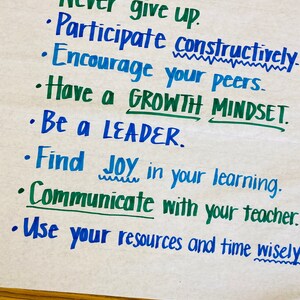 Never give up.
• Participate constructively.
• Encourage your peers.
• Have a GROWTH MINDSET.
• Be a LEADER.
• Find JOY in your learning.
• Communicate with your teacher.
• Use your resources and time wisely